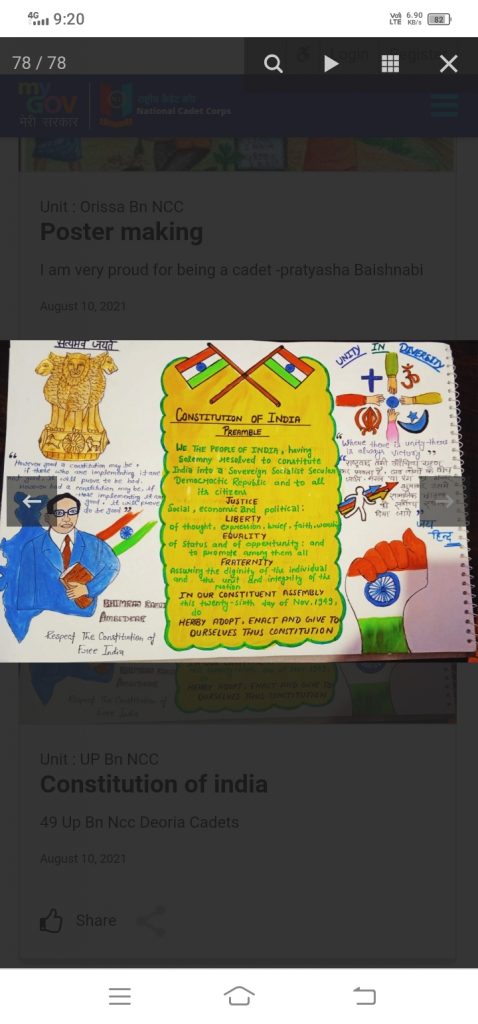 4G 9:20 Vo) LTE 6.90 KB/s 82
78 / 78
Login
my GOV
मेरी सरकार
राष्ट्रीय कैडेट कोर
National Cadet Corps
Unit : Orissa Bn NCC
Poster making
I am very proud for being a cadet -pratyasha Baishnabi
August 10, 2021
सत्यमेव जयते
“
However good a constitution may be,
if those who are implementing it are
not good, it will prove to be bad.
However bad a constitution may be, if
those implementing it are
good, it will prove
to be good”
Ambedkar
Respect The Constitution of
Free India
CONSTITUTION OF INDIA
PREAMBLE
WE THE PEOPLE OF INDIA, having
Solemny resolved to constitute
India into a Sovereign Socialist Secular
Democractic Republic and to all
its citizens
JUSTICE
Social, economic and political:
LIBERTY
of thought, expression, faith,
EQUALITY
of Status and of opportunity: and
to promote among them all
FRATERNITY
Assuring the diginity of the individual
and the unit and integrity of the
Nation
IN OUR CONSTITUENT ASSEMBLY
this twenty-sixth day of Nov. 1949,
do
HERBY ADOPT, ENACT AND GIVE TO
OURSELVES THUS CONSTITUTION
UNITY IN DIVERSITY
“Where there is unity there
is always victory”
जय
हिन्द
HERBY ADOPT, ENACT AND GIVE TO
OURSELVES THUS CONSTITUTION
Respect The Constitution of
Free India
Unit : UP Bn NCC
Constitution of india
49 Up Bn Ncc Deoria Cadets
August 10, 2021
Share